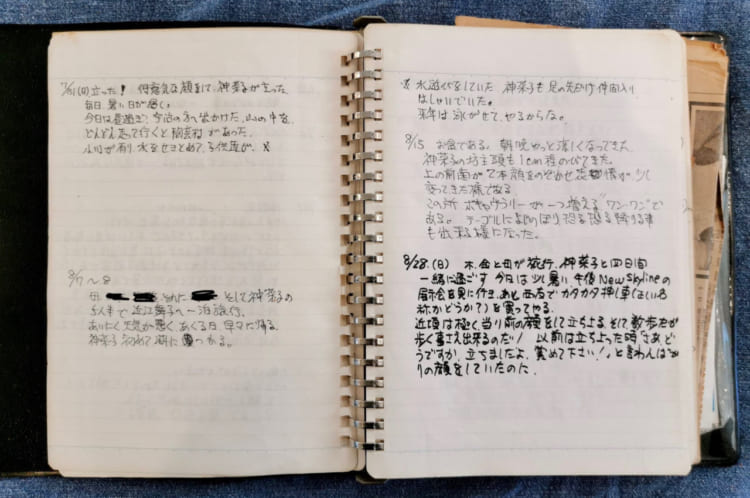 7/31(日) 立った! 何喜気な顔をして、神菜子が立った
毎日、暑い日が続く。
今日は昼過ぎ、今治の方へ出かけた、山の中を、
どんどん走って行くと 陶芸村があった。
小川が有り、水をせきとめて、子供達が、※
8/7〜8
そして神菜子の
5人で 近江舞子へ一泊旅行。
あいにく天気が悪く、あくる日、早々に帰る。
神菜子 初めて 湖に つかる。
※ 水遊びをしていた 神菜子も 足の先だけ 仲間入り
はしゃいでいた。
来年は 泳がせて、やるからな。
8/15 お盆である。朝晩やっと涼しくなってきた
神菜子の坊主頭も 1cm程のびてきた。
上の前歯が 2本顔をのぞかせ 少し
変ってきた様である
この所 ボキャヴラリーが 一つ増える "ワンワン"で
ある。 テーブルによじのぼり、恐る恐る降りる事
も出来る様になった。
8/28.(日) 木、金と母が旅行、神菜子と四日間
一緒に過ごす 今日は少し暑い 午後 New Skylineの
展示会を見に行き、あと西友で カタカタ押し車(はい名
称かどうか?)を買ってやる。
近頃は極く当り前の顔をして立ちよる、そして、数歩だが
歩く事さえ出来るのだ! 以前は立ちよった時 "さあ、ど
うですか、立ちましたよ、賞めて下さい!"と言わんばか
りの顔をしていたのに.